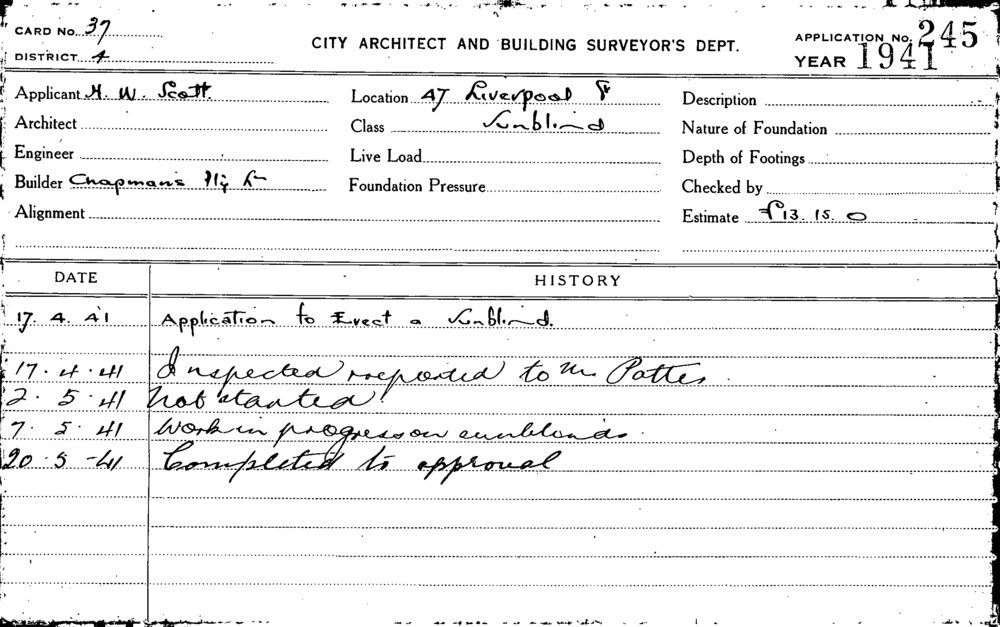 CARD No. 37
DISTRICT 4
CITY ARCHITECT AND BUILDING SURVEYOR'S DEPT.
APPLICATION No. 245
YEAR 1941
Applicant H. W. Scott.
Architect
Engineer
Builder Chapman's
Alignment
Location 47 Liverpool St
Class Sunblind
Live Load
Foundation Pressure
Description
Nature of Foundation
Depth of Footings
Checked by
Estimate £13. 15. 0
DATE HISTORY
17. 4. 41 Application to Erect a Sunblind.
17. 4. 41 Inspected & reported to Mr
2. 5. 41 Not started
7. 5. 41 Work in progress on sunblinds.
20. 5 - 41 Completed to approval